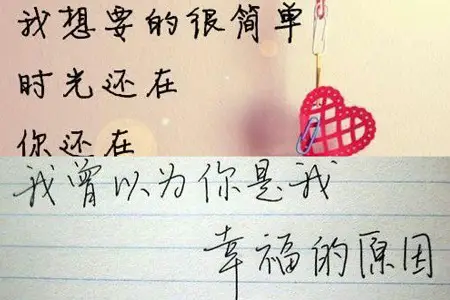 我想要的很简单
时光还在
你还在
我曾以为你是我
幸福的原因